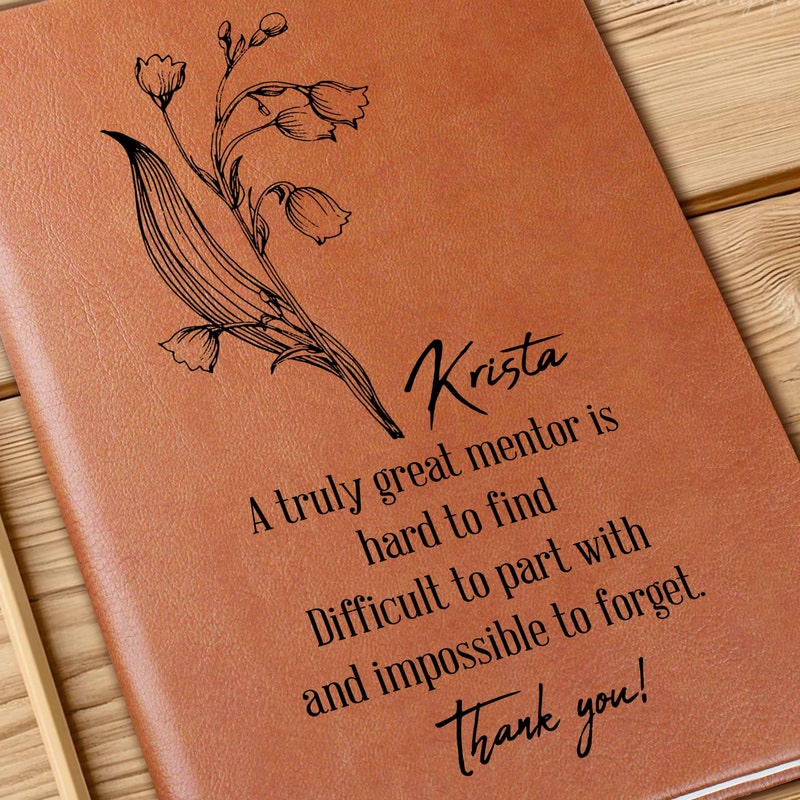 Krista
A truly great mentor is
hard to find
Difficult to part with
and impossible to forget.
Thank you!